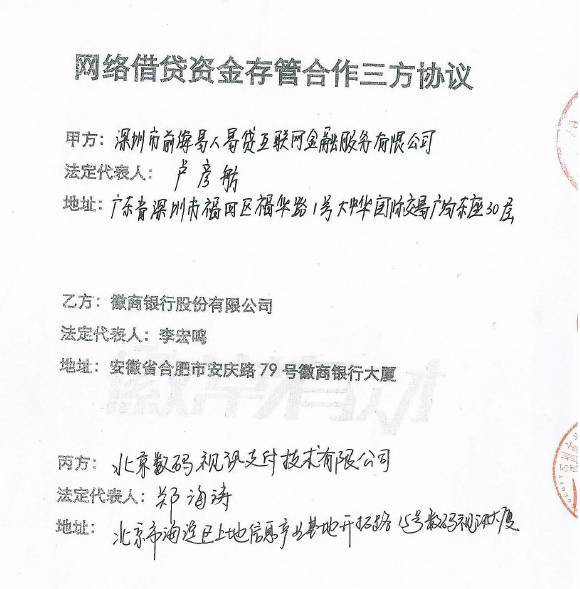 网络借贷资金存管合作三方协议
甲方：深圳市前海易人易贷互联网金融服务有限公司
法定代表人：卢彦
地址：广东省深圳市福田区福华路1号大中华国际交易广场东座30层
乙方：徽商银行股份有限公司
法定代表人：李宏鸣
地址：安徽省合肥市安庆路79号徽商银行大厦
丙方：北京数码视讯支付技术有限公司
法定代表人：郑海涛
地址：北京市海淀区上地信息产业基地开拓路15号数码视讯大厦